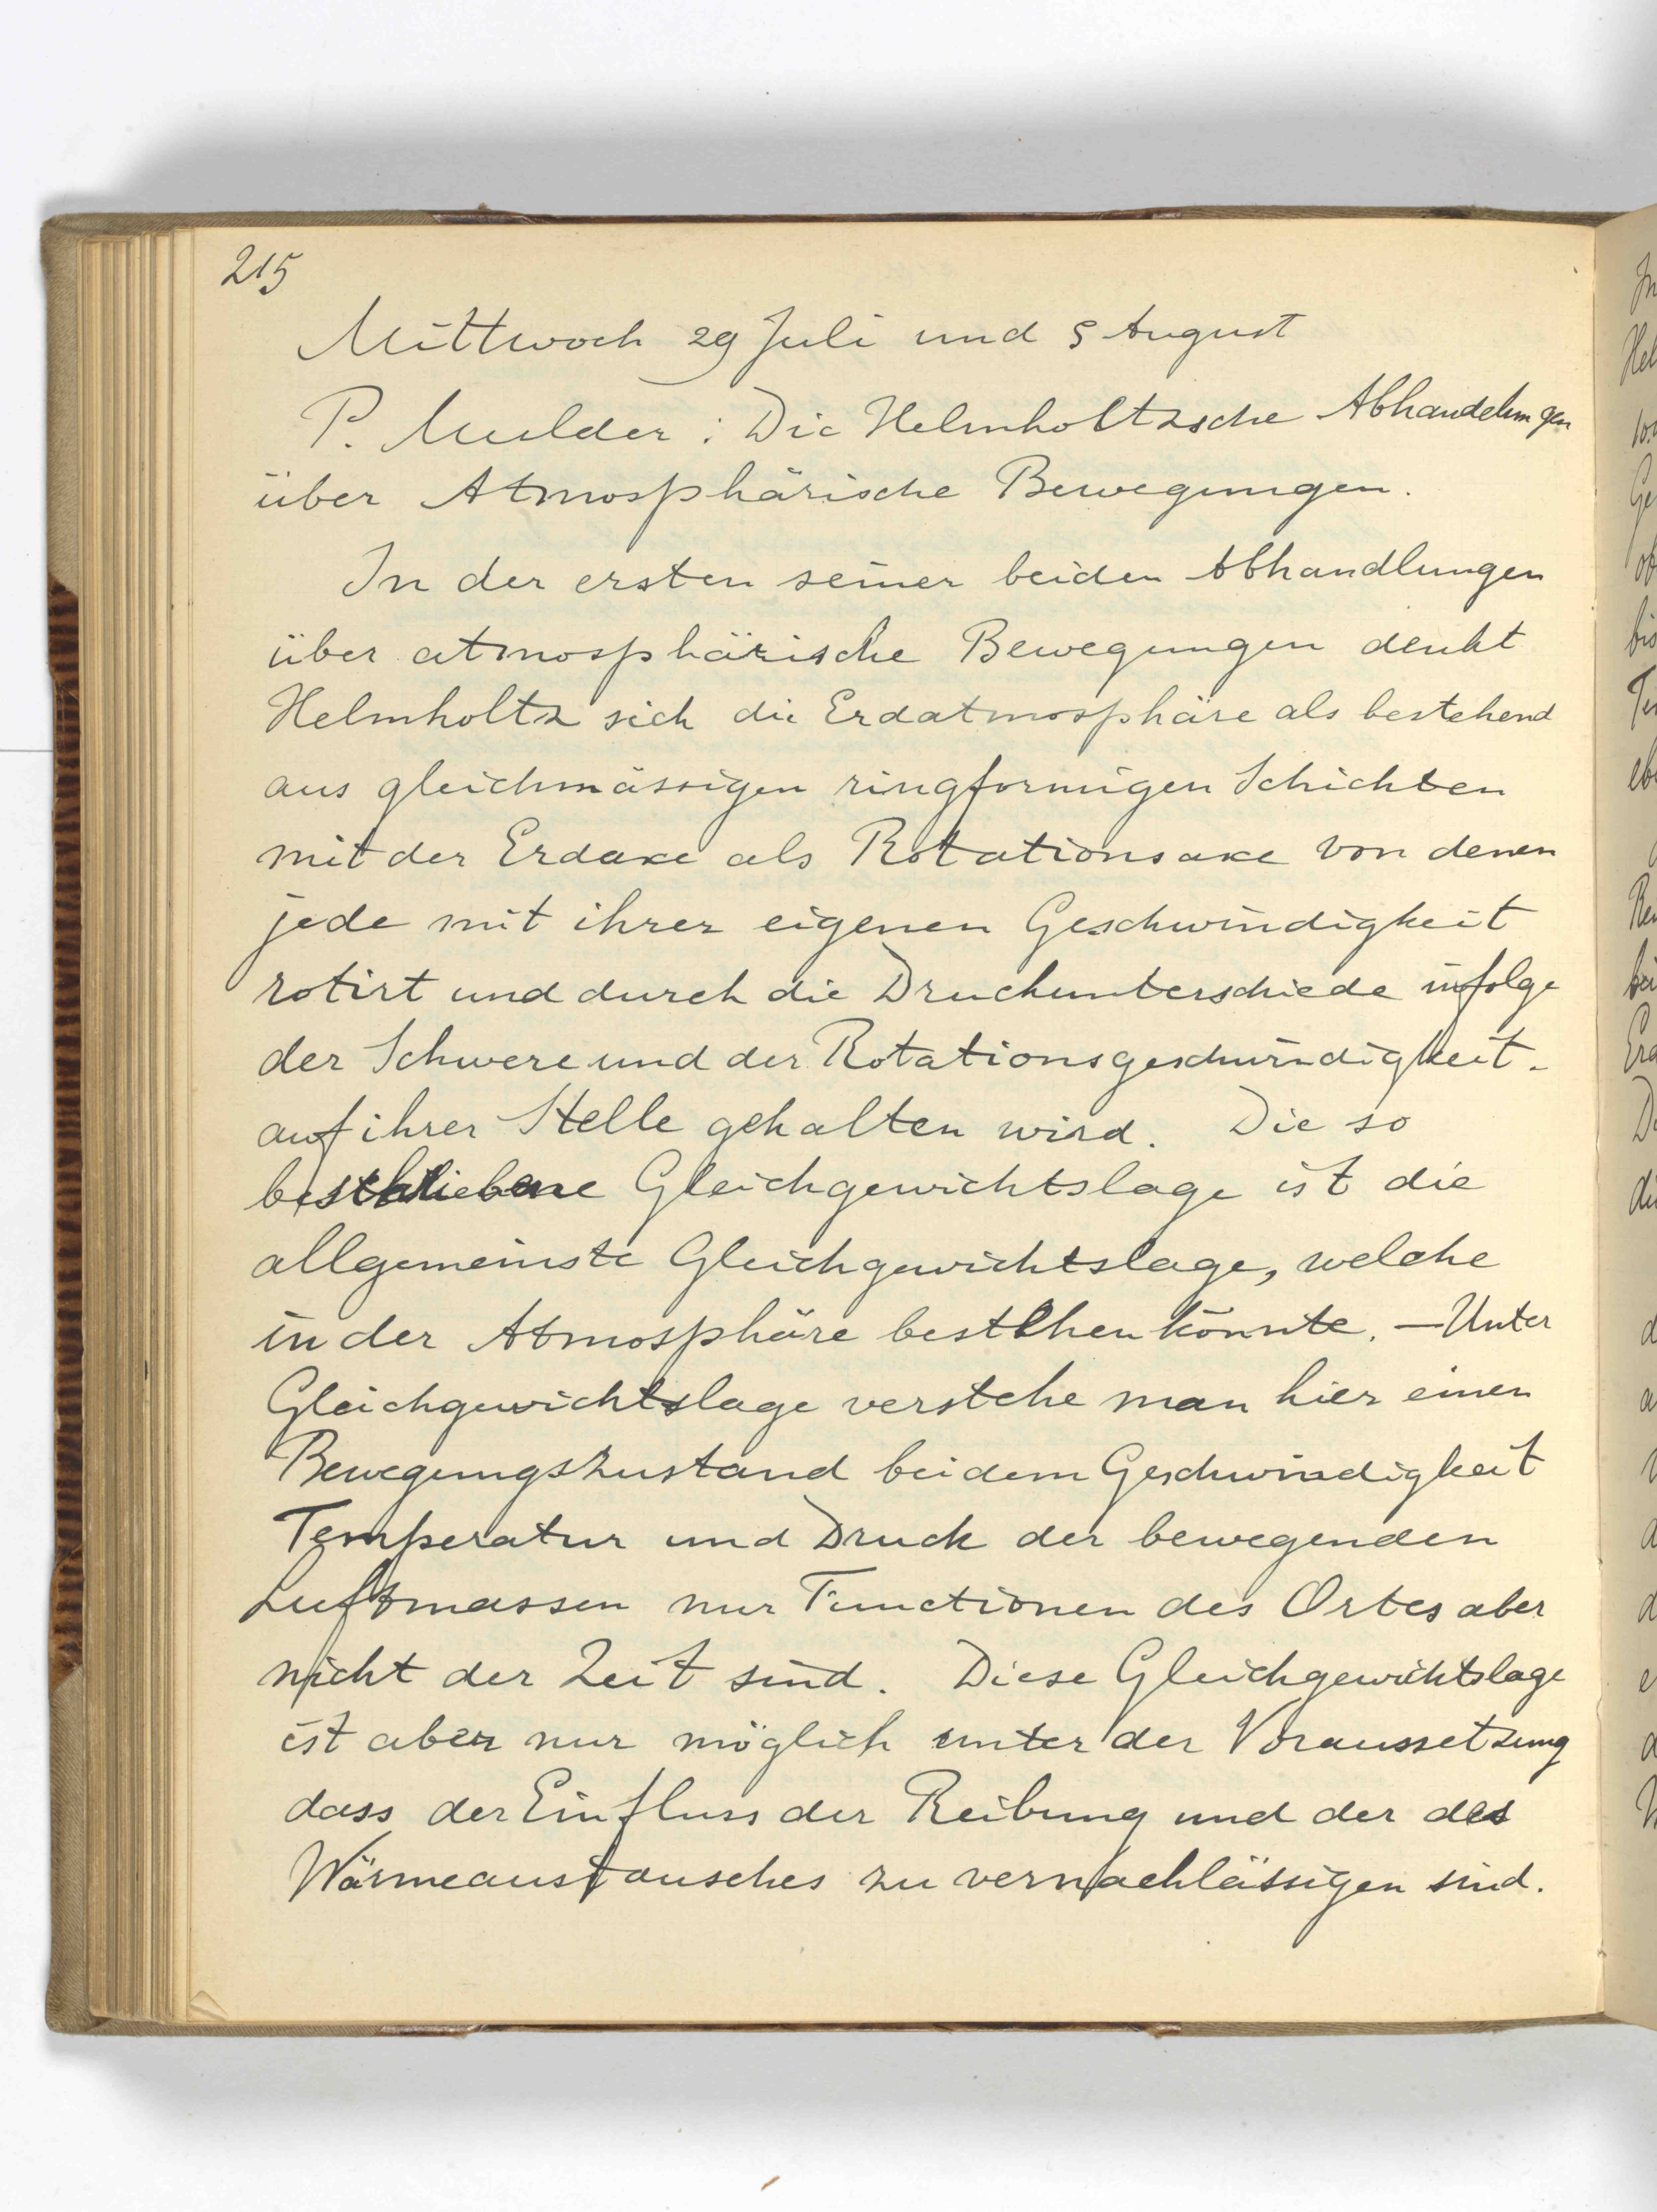 215
Mittwoch 29 Juli und 5 August
P. Mulder : Die Helmholtzsche Abhandelungen
über Atmosphärische Bewegungen.
In der ersten seiner beiden Abhandlungen
über atmosphärische Bewegungen denkt
Helmholtz sich die Erdatmosphäre als bestehend
aus gleichmässigen ringformigen Schichten
mit der Erdaxe als Rotationsaxe von denen
jede mit ihrer eigenen Geschwindigkeit
rotirt und durch die Druckunterschiede infolge
der Schwere und der Rotationsgeschwindigkeit.
auf ihrer Stelle gehalten wird. Die so
beschriebene Gleichgewichtslage ist die
allgemeinste Gleichgewichtslage, welche
in der Atmosphäre bestehen könnte. — Unter
Gleichgewichtslage verstehe man hier einen
Bewegungszustand bei dem Geschwindigkeit
Temperatur und Druck der bewegenden
Luftmassen nur Functionen des Ortes aber
nicht der Zeit sind. Diese Gleichgewichtslage
ist aber nur möglich unter der Voraussetzung
dass der Einfluss der Reibung und der des
Wärmeaustausches zu vernachlässigen sind.